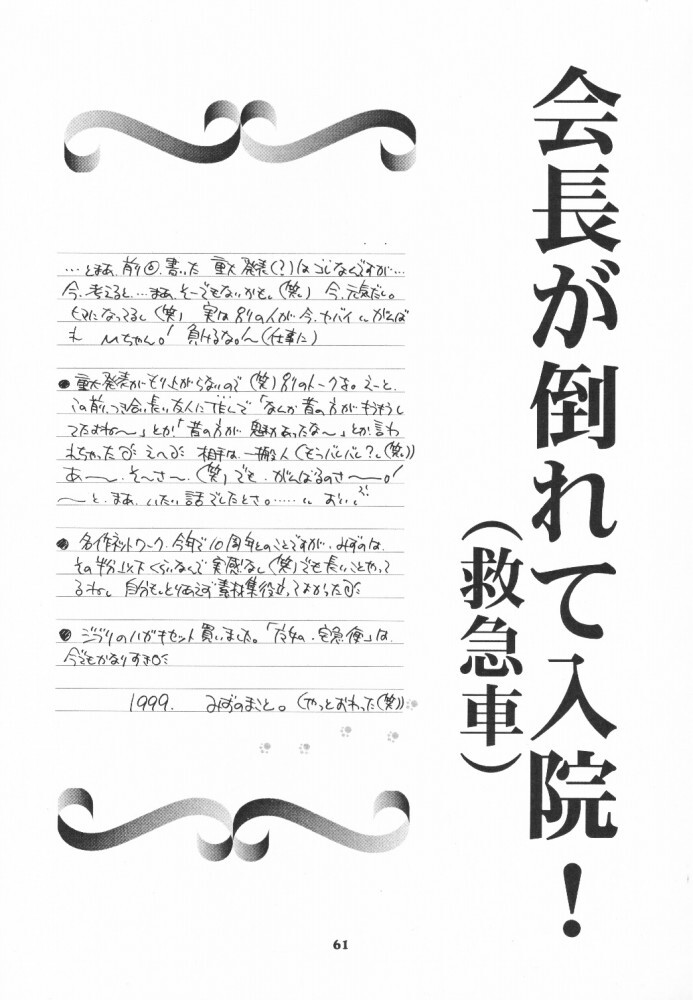 会長が倒れて入院!
(救急車)
…とまあ、前回書いた 重大発表(?)はコレなんですが…
今、考えると…まあ、そーでもないかも。(笑) 今、元気だし。
ヒマになってるし(笑) 実は別の人が今、ヤバイ がんば
れ Mちゃん。! 負けるな。!〜(仕事に)
●重大発表がもり上がらないので(笑)別のトークを。えーと、
この前、つき合い長い友人に 「なんか昔の方がもうもうし
てたよね〜」とか!「昔の方が魅力あったな〜」とか言わ
れちゃった えへ 相手は一般人(もうバレバレ?。(笑))
あー〜、そ〜さ〜、(笑)でも がんばるのさ〜〜。!
〜と、まあ、いたい話でしたとさ。…… おいi
●名作ネットワーク、今年で10周年とのことですが、みずのは、
その半分以下くらいなんで 実感なし(笑)でも長いことやって
るわね。自分も とりあえず素材集役立ってよかった
●ジブリのハガキセット買いました。「魔女の宅急便」は、
今でもかなりすき
1999. みずのまこと。(やっとおわった(笑))
61